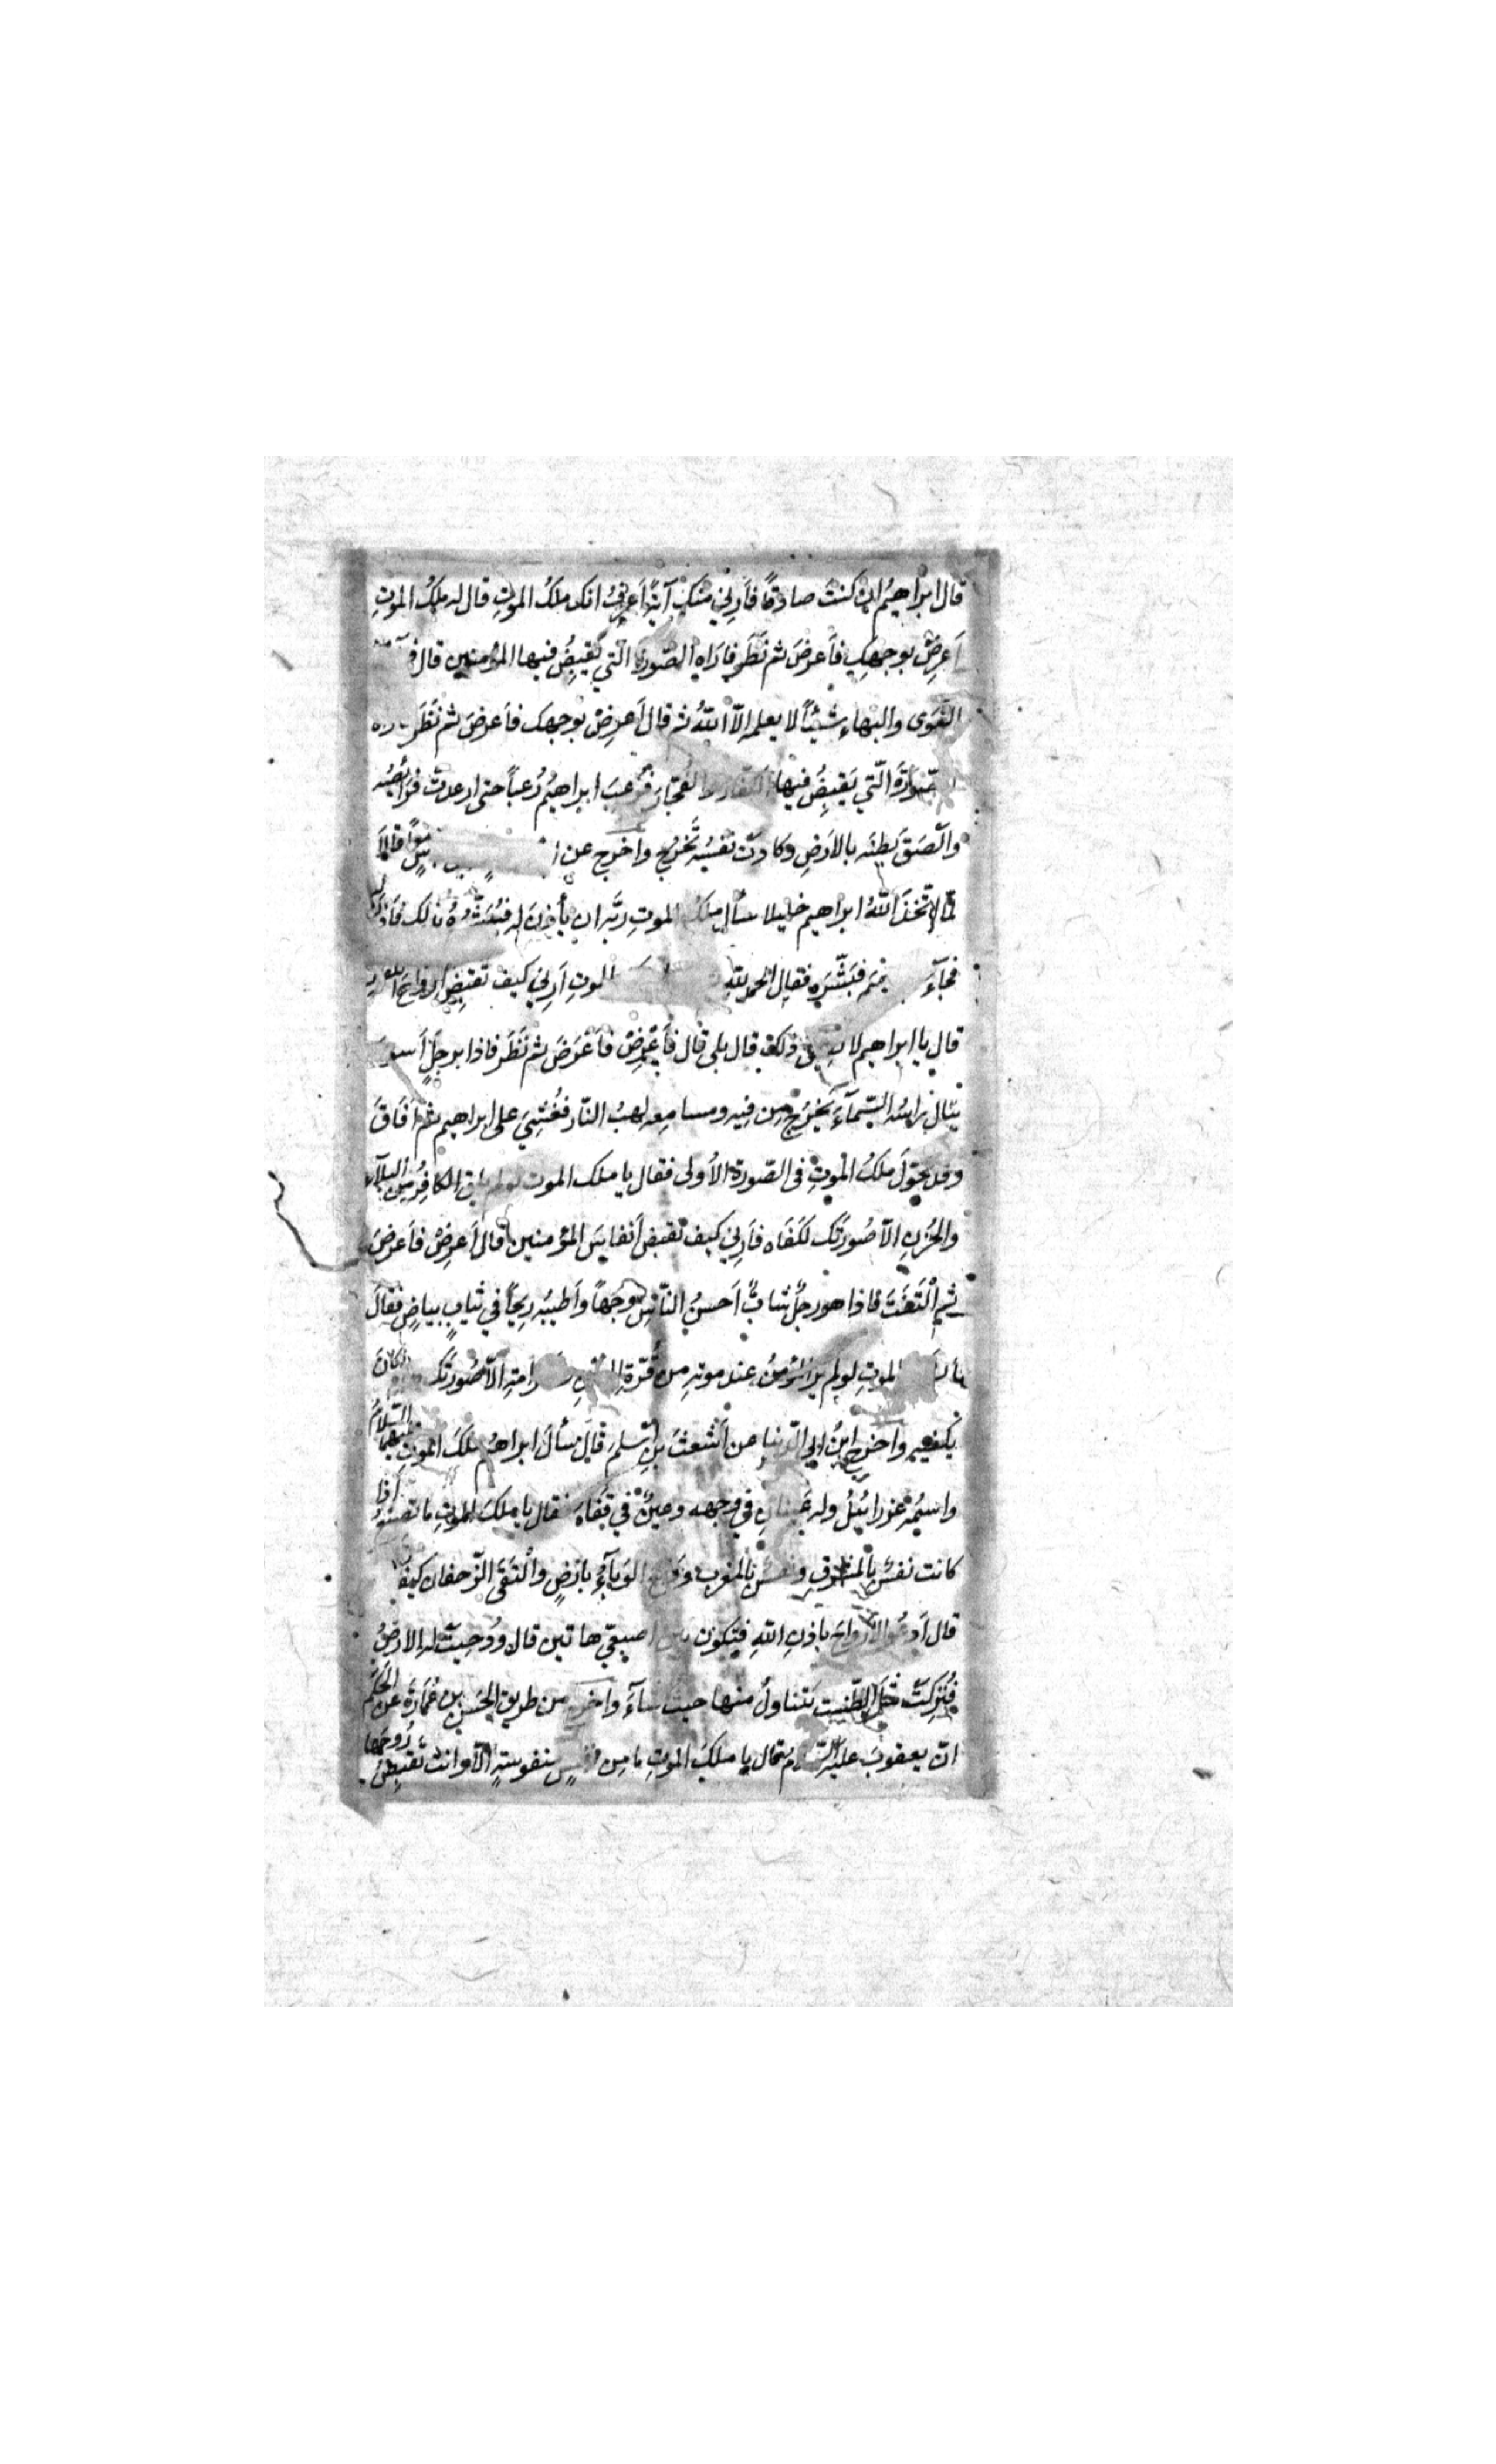 قال ابراهيمُ ان كنتَ صادقاً فأَرِني منكَ آيةً أَعرِفُ انكَ ملكُ الموتِ قال له ملكُ الموتِ
أَعرِضْ بوجهِكَ فأَعرضَ ثم نَظَرَ فاَرَاه الصّورةَ الّتي يَقبِضُ فيها المؤمنين قال
النّور والبهاءِ شيئاً لا يعلمه الاّ اللهُ ثم قال أَعرِضْ بوجهك فاَعرضَ ثم نَظَرَ
الصّورةَ الّتي يَقبِضُ فيها الكفّارَ والفجّارَ فرُعِبَ ابراهيمُ رُعباً حتى ارعدتْ فَرَائِصُه
والْصَقَ بطنَه بالارضِ وكادتْ نفسُه تَخرُجُ واخرج عن ا
لمّا اتّخذَ اللهُ ابراهيم خليلا سأل ملكُ الموتِ ربَّه ان يأذنَ له فيُبَشِّرَهُ بذلك فاَذِنَ له
فجآءَ فبَشَّرَه فقال الحمد للهِ الموتِ أَرِني كيف تقبِضُ ارواحَ
قال يا ابراهيم لا ذلك قال بلى قال فأَعرِضْ فأَعرَضَ ثم نَظَرَ فاذا برجلٍ أسودَ
ينالُ رأسُه السّمآءَ يَخرُجُ مِن فِيه ومسامعِه لهبُ النّار فغُشِيَ على ابراهيم ثم اَفَاقَ
وقد تحوّلَ ملكُ الموتِ في الصّورة الأولى فقال يا ملك الموت لو لم يلق الكافِرُ مِن البلآء
والحُزنِ الاّ صُورَتَك لكَفَاه فأَرِني كيف تقبض أنفاسَ المؤمنين قال أَعرِضْ فأَعرضَ
ثم الْتَفَتَ فاذا هو رجلٌ شابٌّ اَحسنُ النّاسِ وجهاً واَطيبُه رِيحاً في ثيابٍ بياضٍ فقالَ
يا ملكَ الموتِ لو لم يرَ المؤمنُ عند موتِه مِن قُرّةِ العينِ والكرامةِ الاّ صُورَتَك لكانَ
يكفيه واخرج ابنُ ابي الدّنيا عن أشعثَ بنِ اسلم قال سألَ ابراهيمُ ملكَ الموت عليهما السّلامُ
واسمُه عزرائيلُ وله عَينانِ في وجهه وعينٌ في قفَاه فقال يا ملكَ الموتِ ما تصنعُ اذا
كانت نفسٌ بالمشرقِ ونفسٌ بالمغربِ ووقعَ الوبآءُ بارضٍ والْتَقَى الزّحفان كيفَ
قال اَدعُو الأرواحَ باذنِ اللهِ فتكون بين اصبعيّ هاتين قال ودُحِيَتْ له الارضُ
فتُرِكتْ مثلَ الطّستِ يَتناولُ منها حيثُ شآءَ واخرج من طريقِ الحسنِ بنِ عُمَارَةَ عن الحَكَمِ
انّ يعقوبَ عليه السّلام قال يا ملكَ الموتِ ما مِن نفسٍ منفوسةٍ الاّ وانتَ تَقبِضُ رُوحَها